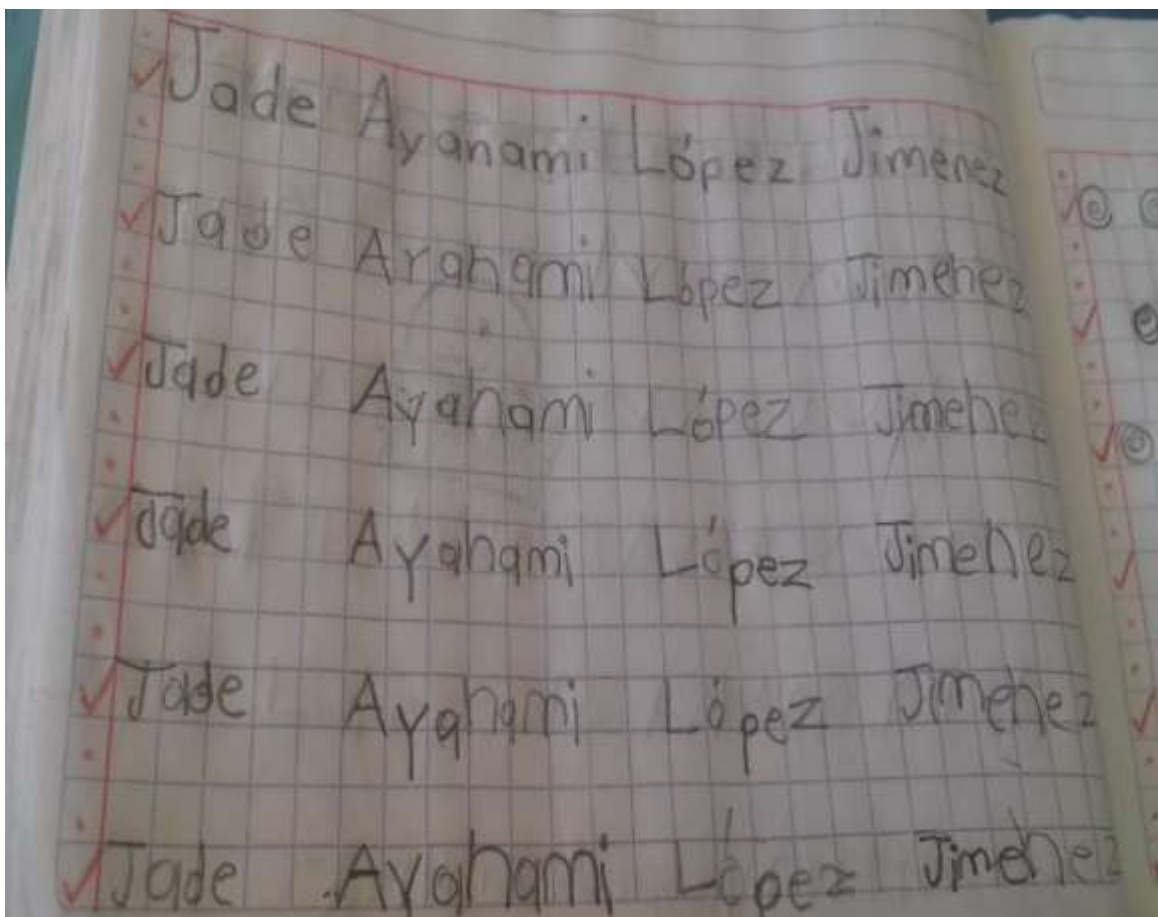 Jade Ayanami López Jimenez
Jade Ayanami López Jimenez
Jade Ayanami López Jimenez
Jade Ayanami López Jimenez
Jade Ayanami López Jimenez
Jade Ayanami López Jimenez